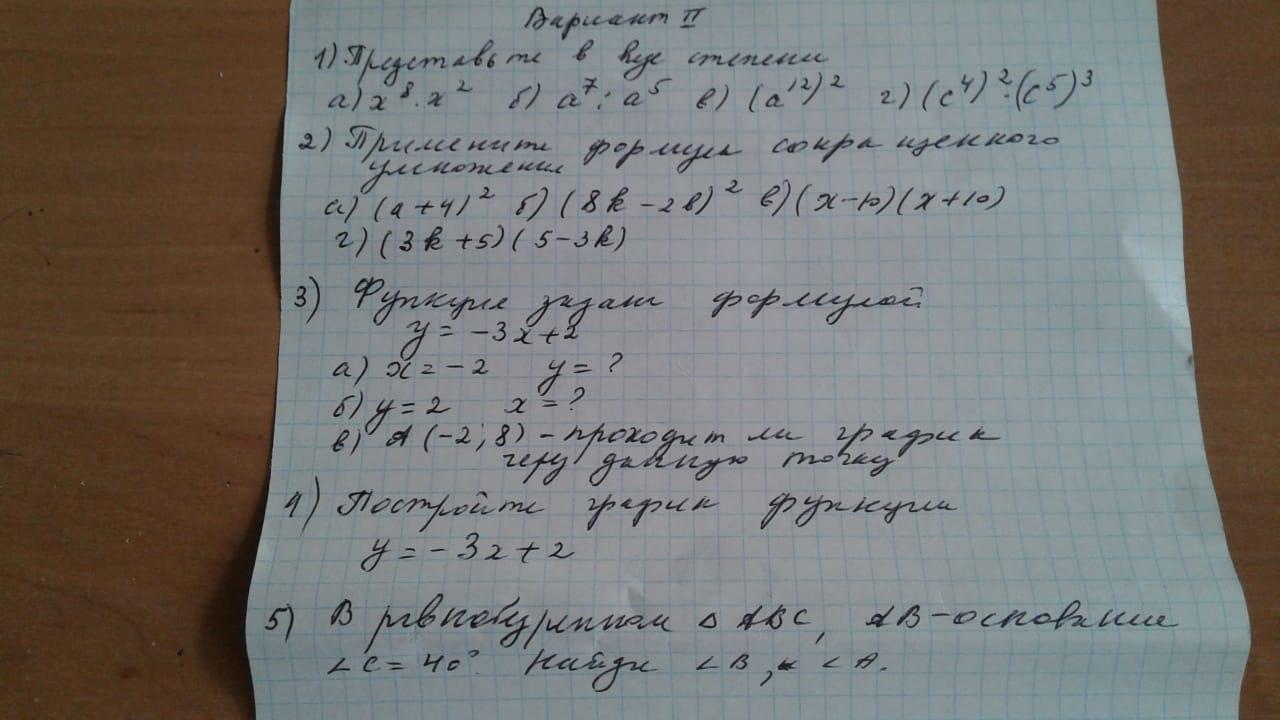 Вариант II
1) Представьте в виде степени
а) x⁸·x² б) a⁷:a⁵ в) (a¹²)² г) (c⁴)²·(c⁵)³
2) Примените формулы сокращенного
умножения
а) (a+4)² б) (8k-2b)² в) (x-10)(x+10)
г) (3k+5)(5-3k)
3) Функция задана формулой
y = -3x+2
а) x = -2 y = ?
б) y = 2 x = ?
в) A (-2; 8) - проходит ли график
через данную точку
4) Постройте график функции
y = -3x+2
5) В равнобедренном △ ABC, AB - основание
∠C = 40°. Найди ∠B, и ∠A.